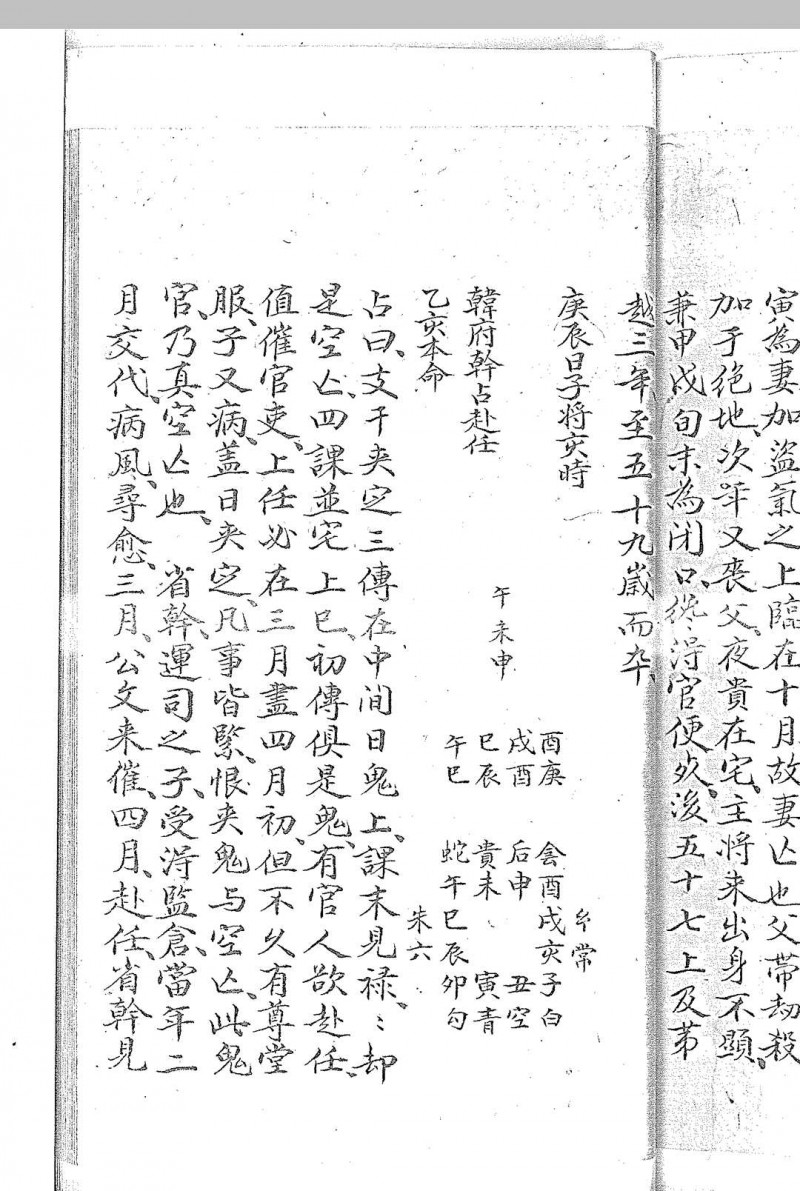 寅為妻加盜氣之上臨在十月故妻亾也父帶劫殺
加于絕地、次年又喪父、夜貴在宅、主將来出身不顯、
兼甲戌旬末為闭口、終淂官便歿、後五十七上及第
越三年、至五十九歲而卒、
庚辰日子将亥時
韓府幹占赴任
乙亥本命
午未申
酉庚
戌酉
巳辰
午巳
玄常
会酉戌亥子白
后申 丑空
貴未 寅青
蛇午巳辰卯勾
朱六
占曰、支干夹定三傳在中间日鬼上、課末見禄、〻却
是空亾、四課並宅上巳、初傳俱是鬼、有官人欲赴任、
值催官吏、上任必在三月盡四月初、但不久有尊堂
服、子又病、盖日夹定、凡事皆緊、恨夹鬼与空亾、此鬼
官、乃真空亾也、 省幹、運司之子、受淂監倉、當年二
月交代、病風、尋愈、三月、公文来催、四月、赴任、省幹見